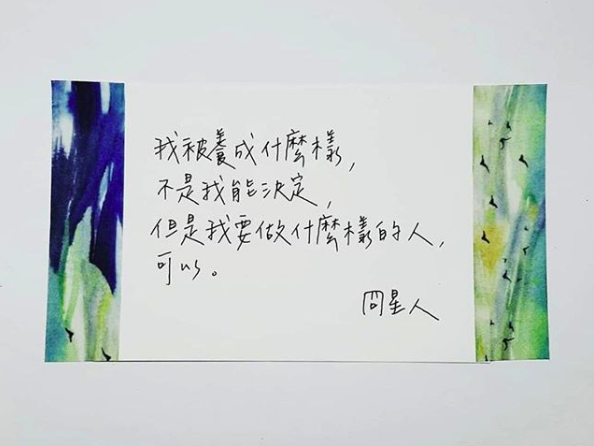 我被養成什麼樣，
不是我能決定，
但是我要做什麼樣的人，
可以。
冏星人